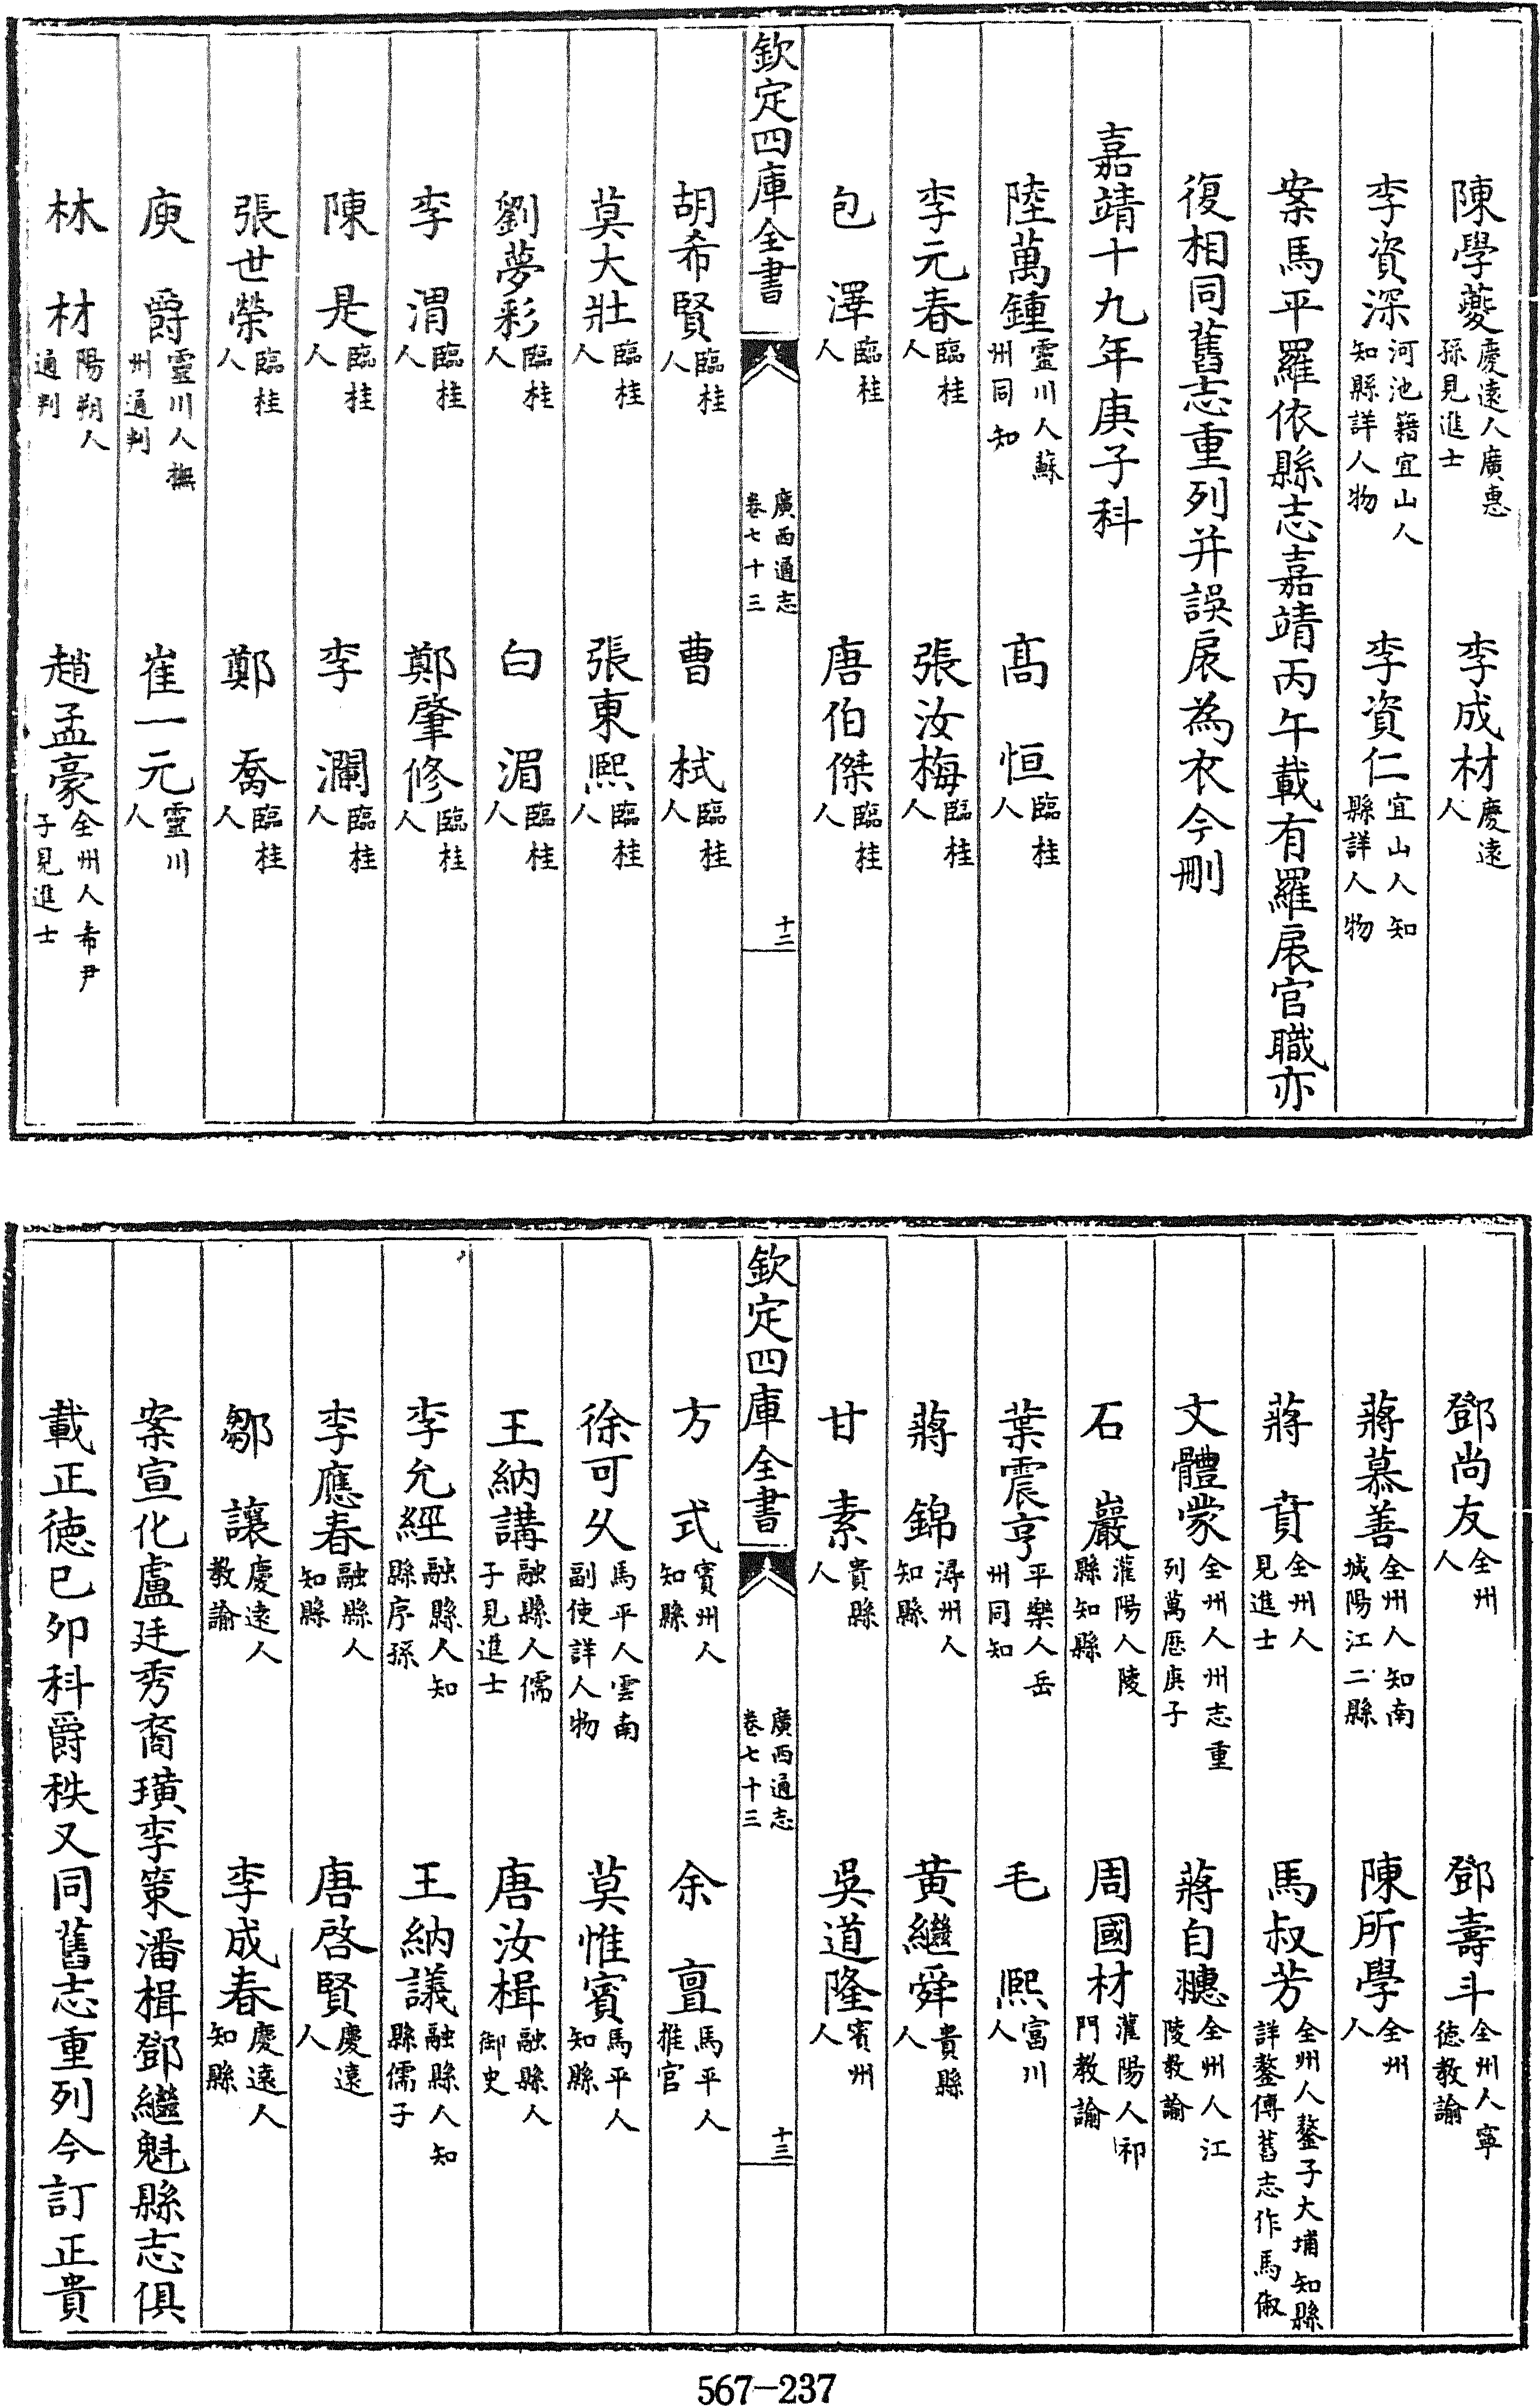 陳學夔慶遠人廣惠孫見進士 李成材慶遠人
李資深河池籍宜山人知縣詳人物 李資仁宜山人知縣詳人物
案馬平羅依縣志嘉靖丙午載有羅扆官職亦
復相同舊志重列并誤扆為衣今刪
嘉靖十九年庚子科
陸萬鍾靈川人蘇州同知 髙恒臨桂人
李元春臨桂人 張汝梅臨桂人
包澤臨桂人 唐伯傑臨桂人
欽定四庫全書 廣西通志卷七十三 十二
胡希賢臨桂人 曹栻臨桂人
莫大壯臨桂人 張東熙臨桂人
劉夢彩臨桂人 白湄臨桂人
李渭臨桂人 鄭肇修臨桂人
陳是臨桂人 李瀾臨桂人
張世榮臨桂人 鄭喬臨桂人
庾爵靈川人撫州通判 崔一元靈川人
林材陽朔人通判 趙孟豪全州人希尹子見進士
鄧尚友全州人 鄧壽斗全州人寧德教諭
蔣慕善全州人知南城陽江二縣 陳所學全州人
蔣賁全州人見進士 馬叔芳全州人鏊子大埔知縣詳鏊傳舊志作馬俶
文體蒙全州人州志重列萬厯庚子 蔣自聰全州人江陵教諭
石巖灌陽人陵縣知縣 周國材灌陽人祁門教諭
葉震亨平樂人岳州同知 毛熙富川人
蔣錦潯州人知縣 黄繼舜貴縣人
甘素貴縣人 吳道隆賓州人
欽定四庫全書 廣西通志卷七十三 十三
方式賓州人知縣 余亶馬平人推官
徐可久馬平人雲南副使詳人物 莫惟賓馬平人知縣
王納講融縣人儒子見進士 唐汝楫融縣人御史
李允經融縣人知縣序孫 王納議融縣人知縣儒子
李應春融縣人知縣 唐啓賢慶遠人
鄒讓慶遠人教諭 李成春慶遠人知縣
案宣化盧廷秀裔璜李策潘楫鄧繼魁縣志俱
載正德己卯科爵秩又同舊志重列今訂正貴
567-237